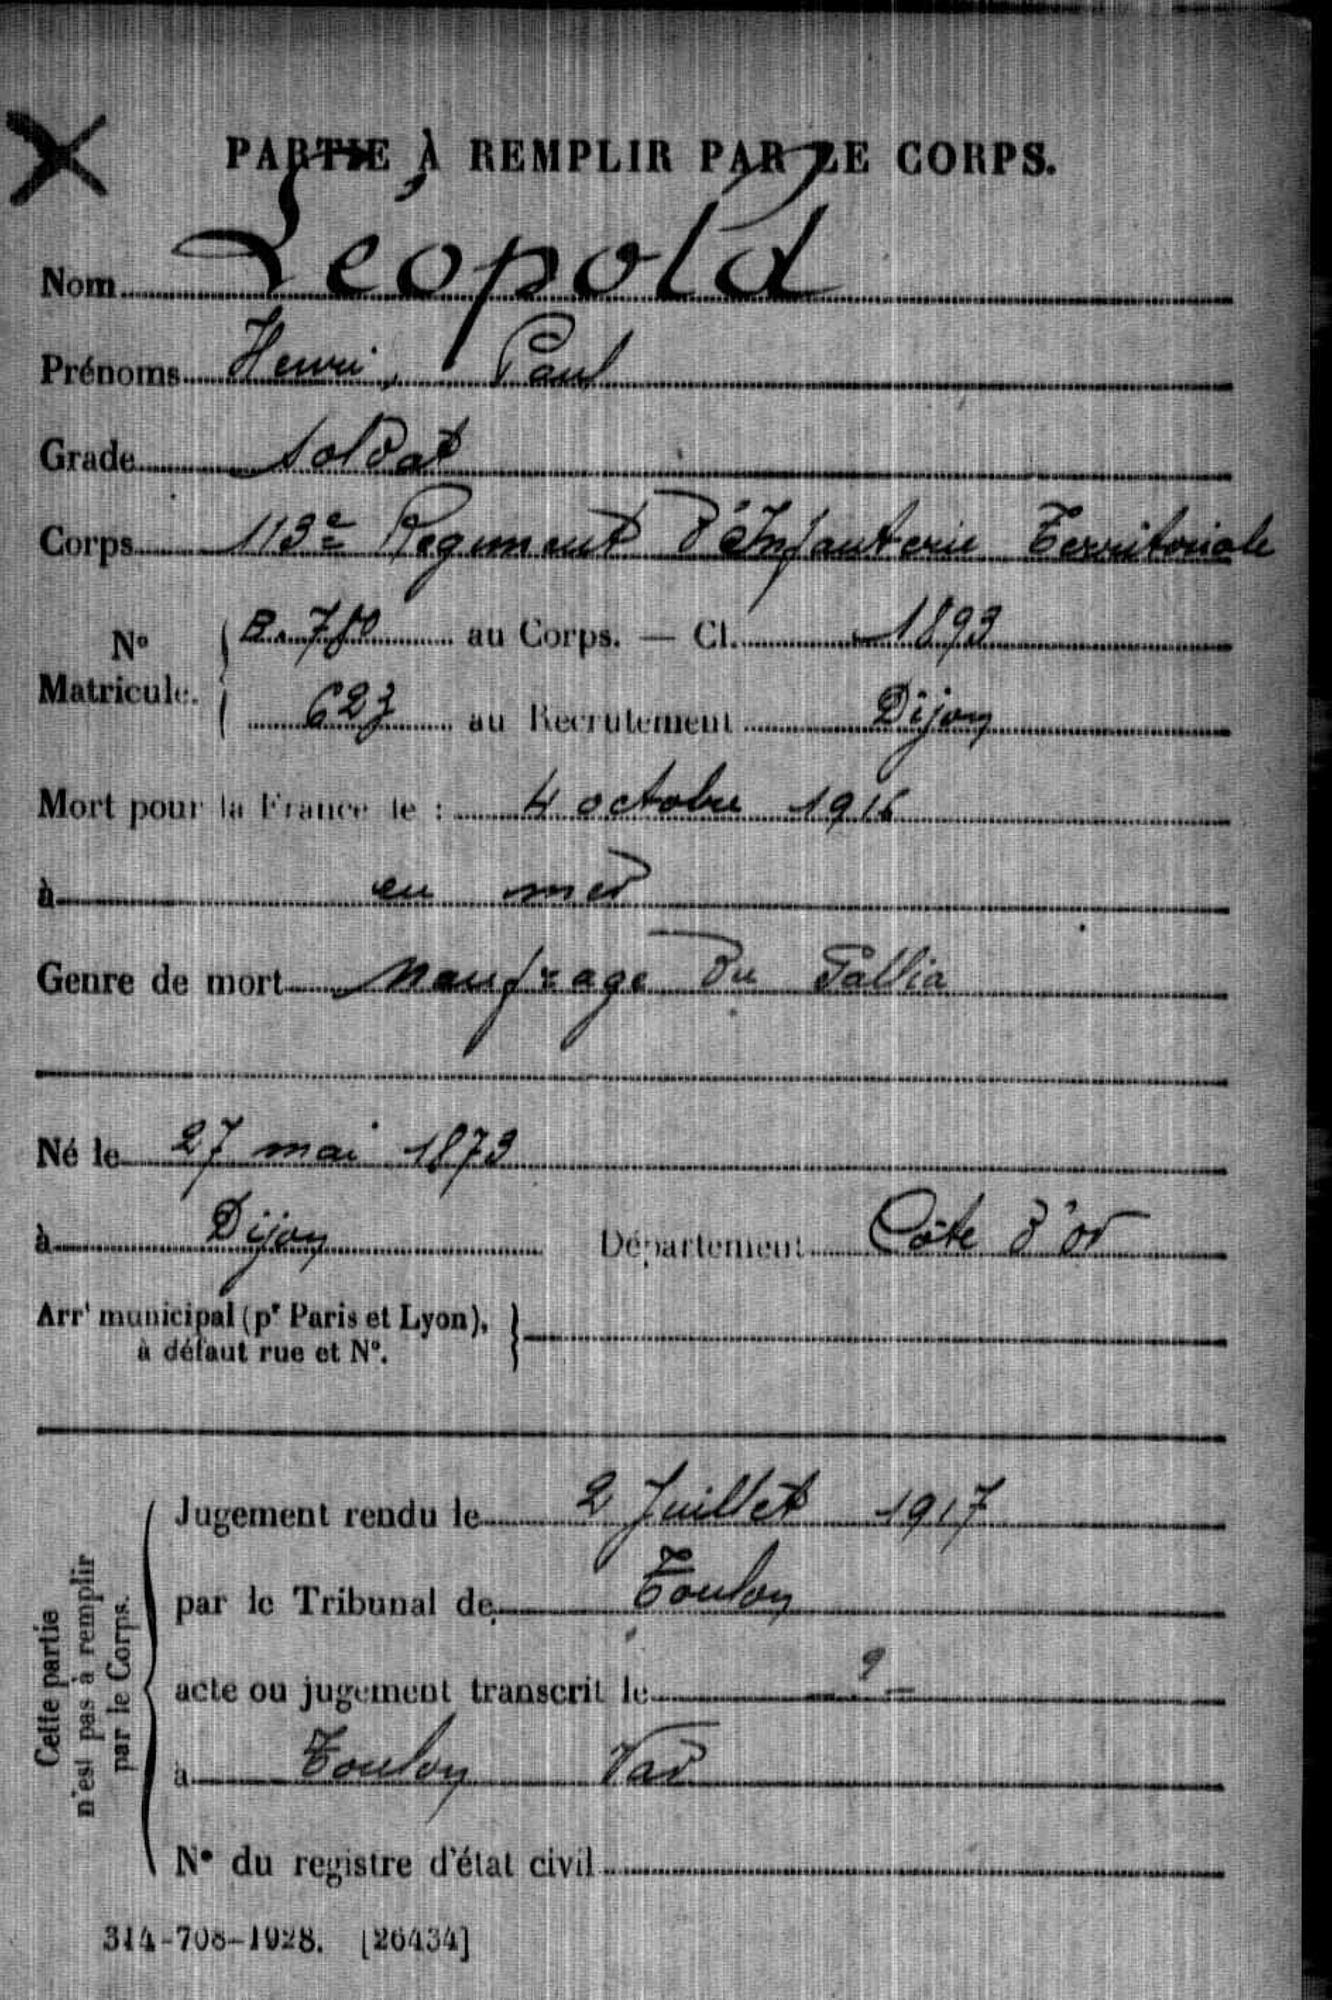 PARTIE À REMPLIR PAR LE CORPS.
Nom Léopold
Prénoms Henri, Paul
Grade soldat
Corps 113e Regiment d'Infanterie Territoriale
No Matricule. B. 780 au Corps. — Cl. 1893
623 au Recrutement Dijon
Mort pour la France le : 4 octobre 1916
à en mer
Genre de mort Naufrage du Gallia
Né le 27 mai 1873
à Dijon Département Côte d'or
Arrt municipal (pr Paris et Lyon),
à défaut rue et N°.
Cette partie
n'est pas à remplir
par le Corps.
Jugement rendu le 2 Juillet 1917
par le Tribunal de Toulon
acte ou jugement transcrit le — ? —
à Toulon Var
N° du registre d'état civil
314-708-1928. [26434]